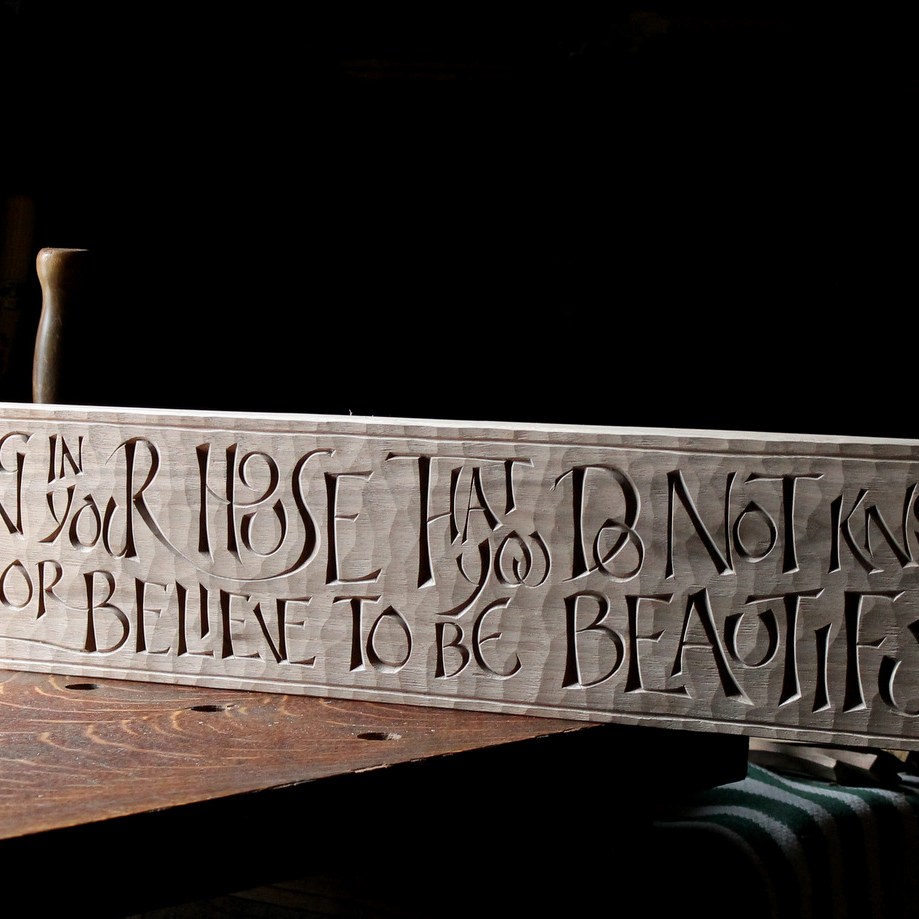 G IN YOUR HOUSE THAT YOU DO NOT KNO
OR BELIEVE TO BE BEAUTIFU